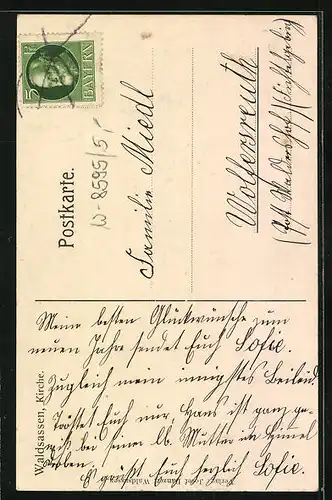 5 PF
BAYERN
Postkarte.
W-8595/5,-
Familie Miedl
Wolfersreuth
(Post Waldershof/Fichtelgebirg)
Waldsassen, Kirche.
Verlag Josef Waldsassen
Meine besten Glückwünsche zum
neuen Jahre sendet Euch Sofie.
Zugleich mein innigstes Beileid.
Tröstet Euch nur Hans ist ganz ge-
wiß bei seiner lb. Mutter im Himmel
droben.
Es grüßt Euch herzlich Sofie.